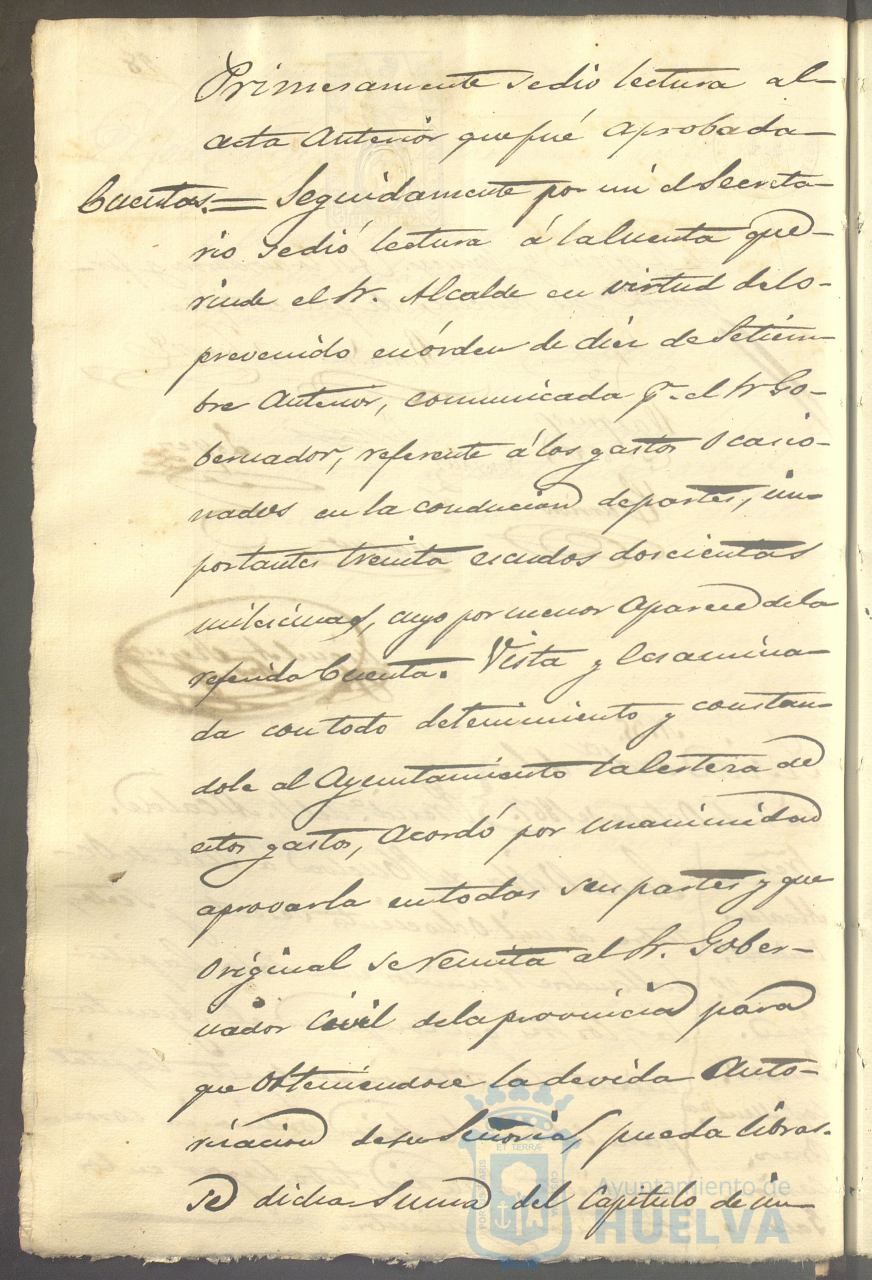 Primeramente se dio lectura al
acta Anterior que fué aprobada
Cuentas.= Seguidamente por mi el Secreta-
rio se dió lectura á la Cuenta que
rinde el Sr. Alcalde en virtud de lo
prevenido en órden de diez de Setiem-
bre Anterior, comunicada pr. el Sr Go-
bernador, referente á los gastos Ocasio-
nados en la conducion de partes, im-
portantes treinta escudos doscientas
milesimas, cuyo por menor aparece de la
referida Cuenta. Vista y Ecsamina-
da con todo detenimiento y constan-
dole al Ayuntamiento la certeza de
estos gastos, Acordó por unanimidad
aprovarla en todas sus partes y que
Original se remita al Sr. Gober-
nador Civil de la provincia para
que Obteniendose la devida Auto-
rizacion de su Señoria, pueda librar-
se dicha Suma del Capitulo de im-
Ayuntamiento de
HUELVA